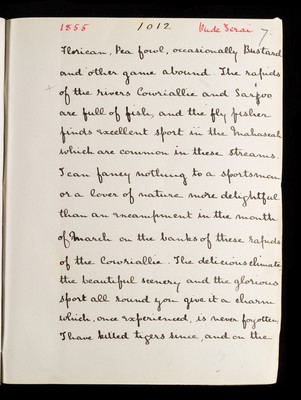 1855 1012 Oude Terai 7
Florican, Pea fowl, occasionally Bustard
and other game abound. The rapids
of the rivers Cowriallie and Sarjoo
are full of fish, and the fly fisher
finds excellent sport in the Mahaseah
which are common in these streams.
I can fancy nothing to a sportsman
or a lover of nature more delightful
than an encampment in the month
of March on the banks of these rapids
of the Cowriallie. The delicious climate
the beautiful scenery and the glorious
sport all round you give it a charm
which, once experienced, is never forgotten,
I have killed tigers since, and on the